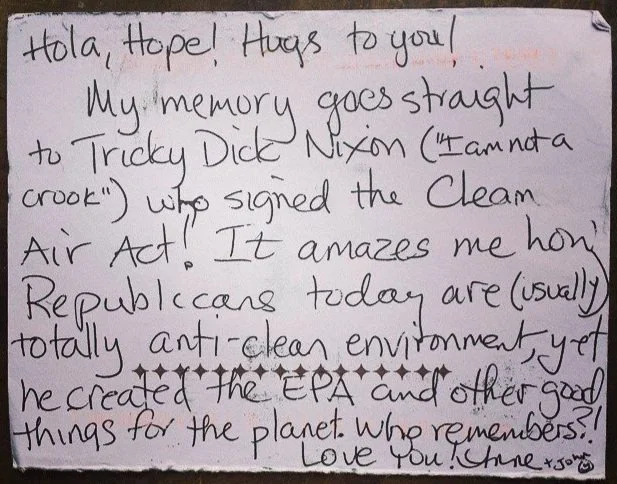 Hola, Hope! Hugs to you!
My memory goes straight
to Tricky Dick Nixon ("I am not a
crook") who signed the Clean
Air Act! It amazes me how
Republicans today are (usually)
totally anti-clean environment, yet
he created the EPA and other good
things for the planet. Who remembers?!
Love You! + John